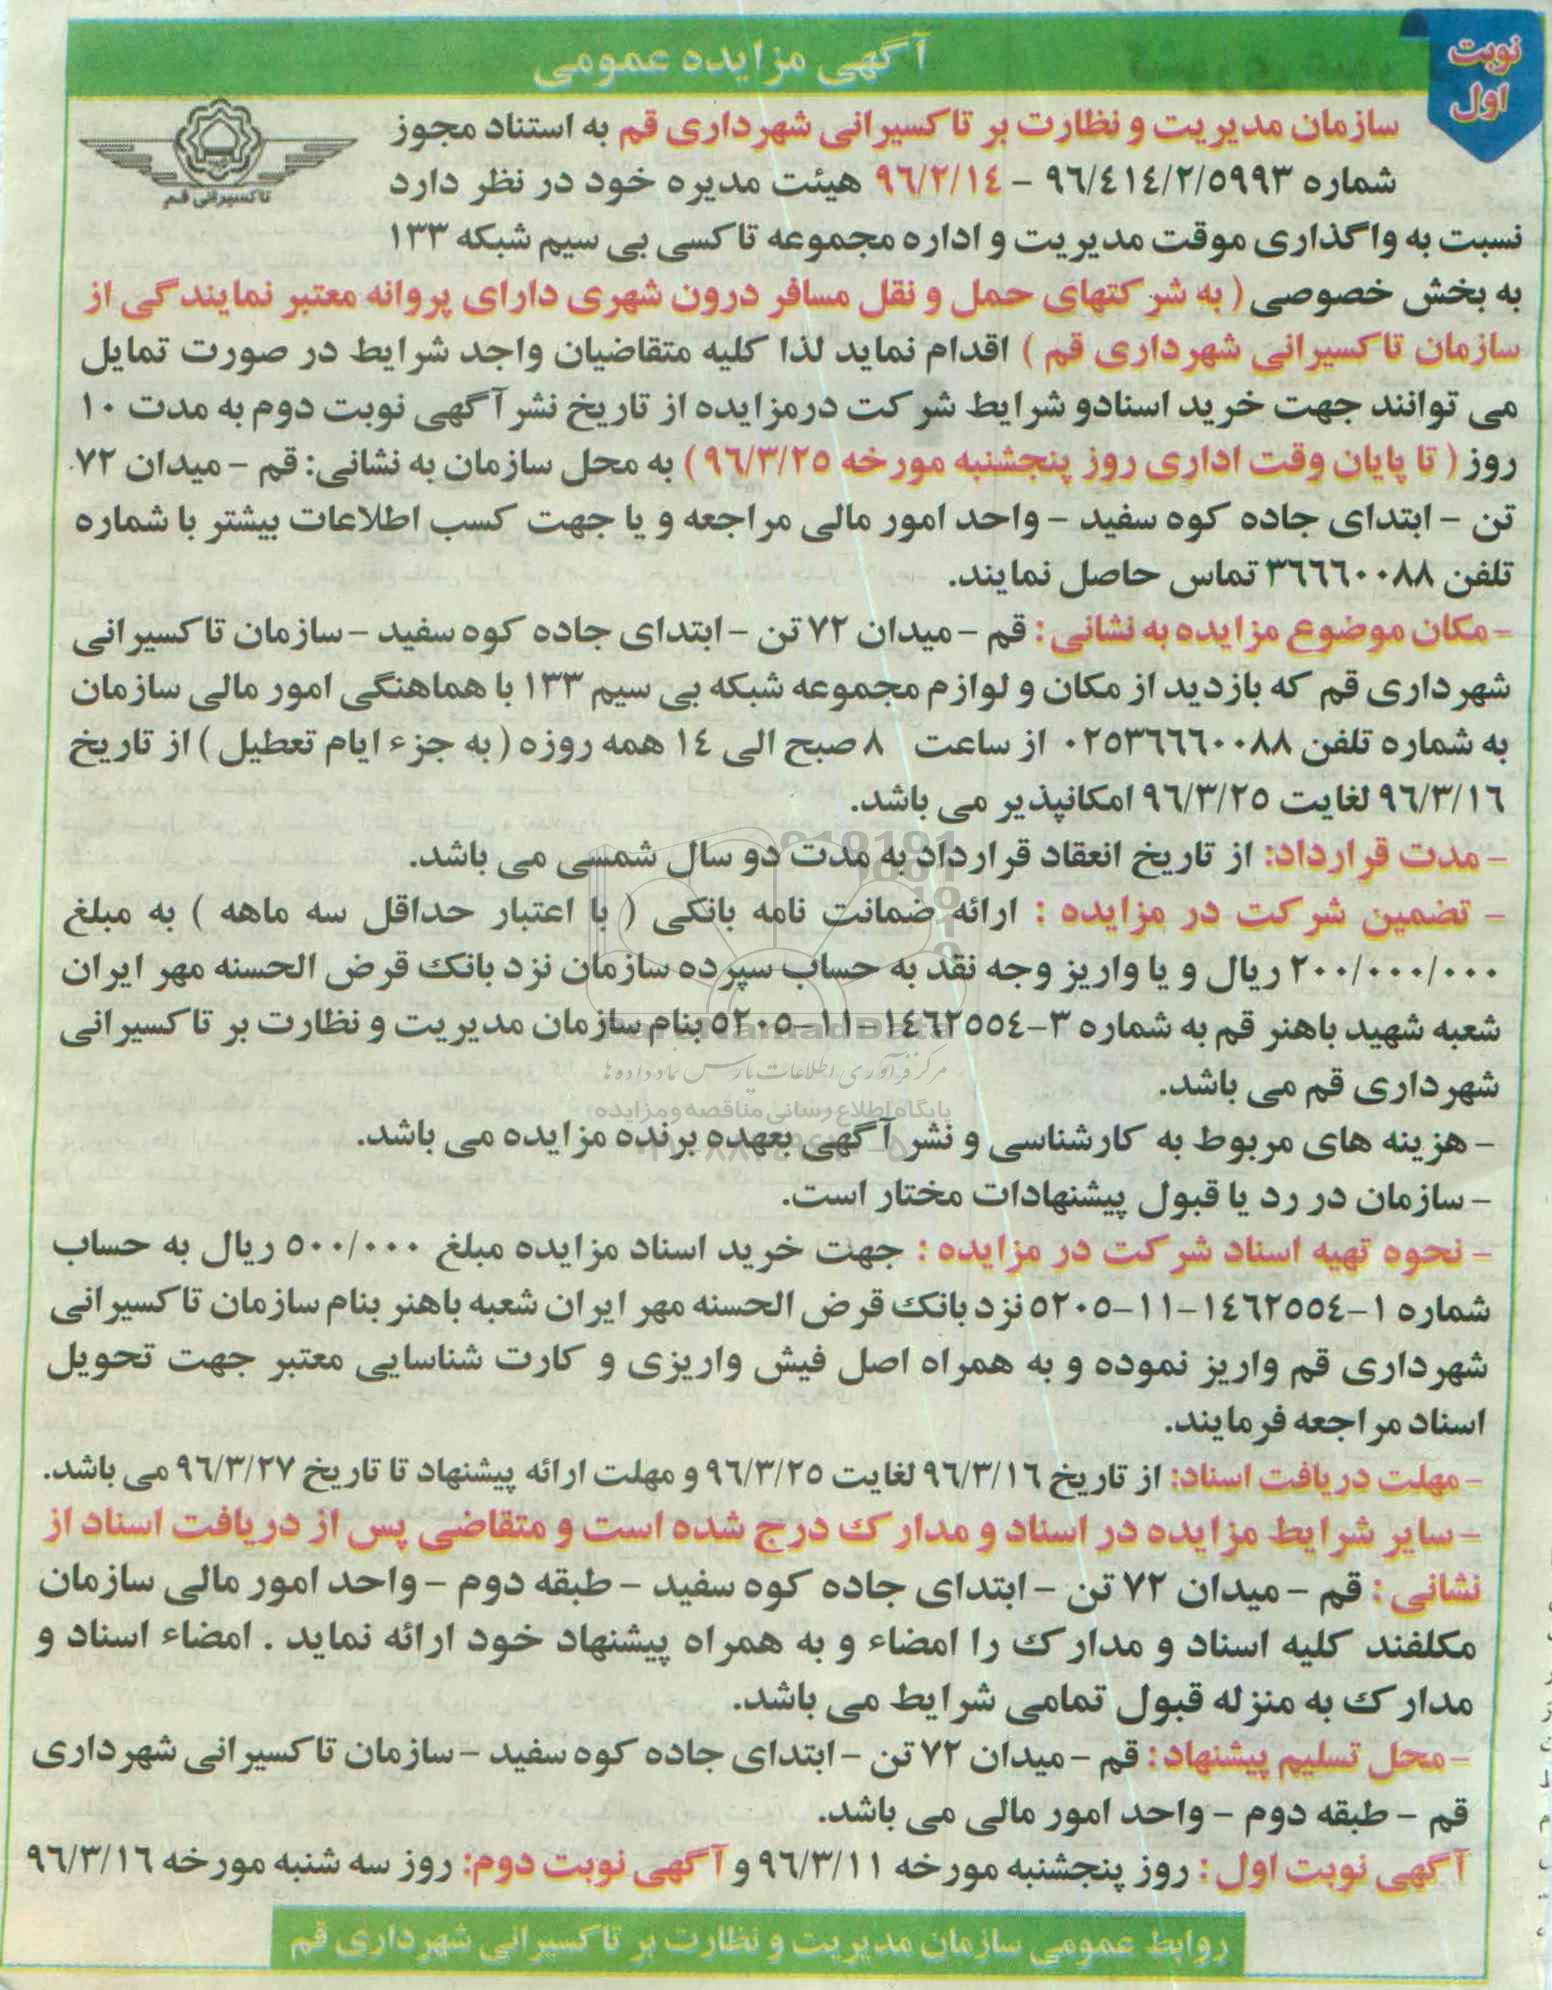 نوبت
اول
آگهی مزایده عمومی
تاکسیرانی قم
سازمان مدیریت و نظارت بر تاکسیرانی شهرداری قم به استناد مجوز
شماره ۹۶/۴۱۴/۲/۵۹۹۳ - ۹۶/۲/۱۴ هیئت مدیره خود در نظر دارد
نسبت به واگذاری موقت مدیریت و اداره مجموعه تاکسی بی سیم شبکه ۱۳۳
به بخش خصوصی ( به شرکتهای حمل و نقل مسافر درون شهری دارای پروانه معتبر نمایندگی از
سازمان تاکسیرانی شهرداری قم ) اقدام نماید لذا کلیه متقاضیان واجد شرایط در صورت تمایل
می توانند جهت خرید اسنادو شرایط شرکت درمزایده از تاریخ نشرآگهی نوبت دوم به مدت ۱۰
روز ( تا پایان وقت اداری روز پنجشنبه مورخه ۹۶/۳/۲۵ ) به محل سازمان به نشانی: قم - میدان ۷۲
تن - ابتدای جاده کوه سفید - واحد امور مالی مراجعه و یا جهت کسب اطلاعات بیشتر با شماره
تلفن ۳۶۶۶۰۰۸۸ تماس حاصل نمایند.
- مکان موضوع مزایده به نشانی : قم - میدان ۷۲ تن - ابتدای جاده کوه سفید - سازمان تاکسیرانی
شهرداری قم که بازدید از مکان و لوازم مجموعه شبکه بی سیم ۱۳۳ با هماهنگی امور مالی سازمان
به شماره تلفن ۰۲۵۳۶۶۶۰۰۸۸ از ساعت ۸ صبح الی ۱۴ همه روزه ( به جزء ایام تعطیل ) از تاریخ
۹۶/۳/۱۶ لغایت ۹۶/۳/۲۵ امکانپذیر می باشد.
- مدت قرارداد: از تاریخ انعقاد قرارداد به مدت دو سال شمسی می باشد.
- تضمین شرکت در مزایده : ارائه ضمانت نامه بانکی ( با اعتبار حداقل سه ماهه ) به مبلغ
۲۰۰/۰۰۰/۰۰۰ ریال و یا واریز وجه نقد به حساب سپرده سازمان نزد بانک قرض الحسنه مهر ایران
شعبه شهید باهنر قم به شماره ۳-۱۴۶۲۵۵۴-۱۱-۵۲۰۵ بنام سازمان مدیریت و نظارت بر تاکسیرانی
مرکز فرآوری اطلاعات پارس نماد داده ها
شهرداری قم می باشد.
پایگاه اطلاع رسانی مناقصه و مزایده
- هزینه های مربوط به کارشناسی و نشر آگهی بعهده برنده مزایده می باشد.
- سازمان در رد یا قبول پیشنهادات مختار است.
- نحوه تهیه اسناد شرکت در مزایده : جهت خرید اسناد مزایده مبلغ ۵۰۰/۰۰۰ ریال به حساب
شماره ۱-۱۴۶۲۵۵۴-۱۱-۵۲۰۵ نزد بانک قرض الحسنه مهر ایران شعبه باهنر بنام سازمان تاکسیرانی
شهرداری قم واریز نموده و به همراه اصل فیش واریزی و کارت شناسایی معتبر جهت تحویل
اسناد مراجعه فرمایند.
- مهلت دریافت اسناد: از تاریخ ۹۶/۳/۱۶ لغایت ۹۶/۳/۲۵ و مهلت ارائه پیشنهاد تا تاریخ ۹۶/۳/۲۷ می باشد.
- سایر شرایط مزایده در اسناد و مدارک درج شده است و متقاضی پس از دریافت اسناد از
نشانی : قم - میدان ۷۲ تن - ابتدای جاده کوه سفید - طبقه دوم - واحد امور مالی سازمان
مکلفند کلیه اسناد و مدارک را امضاء و به همراه پیشنهاد خود ارائه نماید . امضاء اسناد و
مدارک به منزله قبول تمامی شرایط می باشد.
- محل تسلیم پیشنهاد : قم - میدان ۷۲ تن - ابتدای جاده کوه سفید - سازمان تاکسیرانی شهرداری
قم - طبقه دوم - واحد امور مالی می باشد.
آگهی نوبت اول : روز پنجشنبه مورخه ۹۶/۳/۱۱ و آگهی نوبت دوم: روز سه شنبه مورخه ۹۶/۳/۱۶
روابط عمومی سازمان مدیریت و نظارت بر تاکسیرانی شهرداری قم